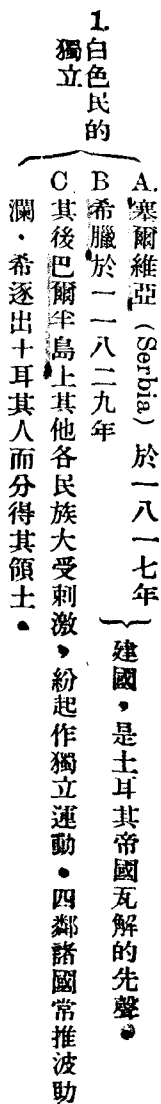 1.白色民的
獨立
A.塞爾維亞(Serbia)於一八一七年
B希臘於一八二九年
建國，是土耳其帝國瓦解的先聲。
C其後巴爾半島上其他各民族大受刺激，紛起作獨立運動。四鄰諸國常推波助
瀾．希逐出土耳其人而分得其領土。